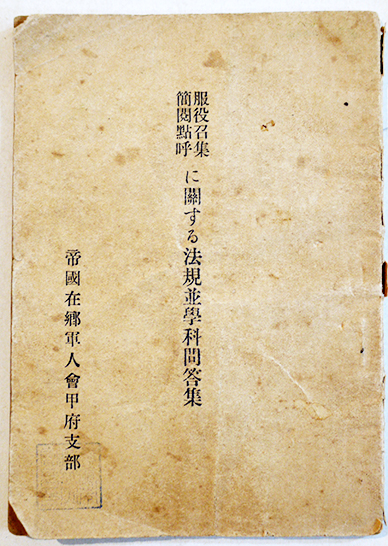 服役召集
簡閲點呼
に關する法規並學科問答集
帝國在鄕軍人會甲府支部